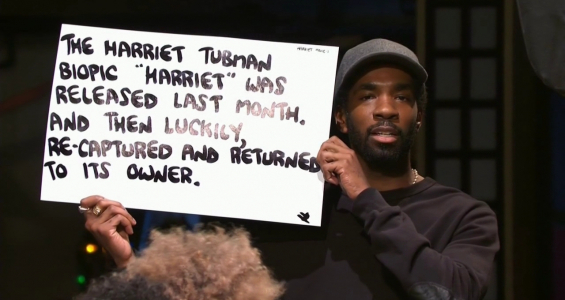 THE HARRIET TUBMAN
BIOPIC "HARRIET" WAS
RELEASED LAST MONTH.
AND THEN LUCKILY,
RE-CAPTURED AND RETURNED
TO ITS OWNER.